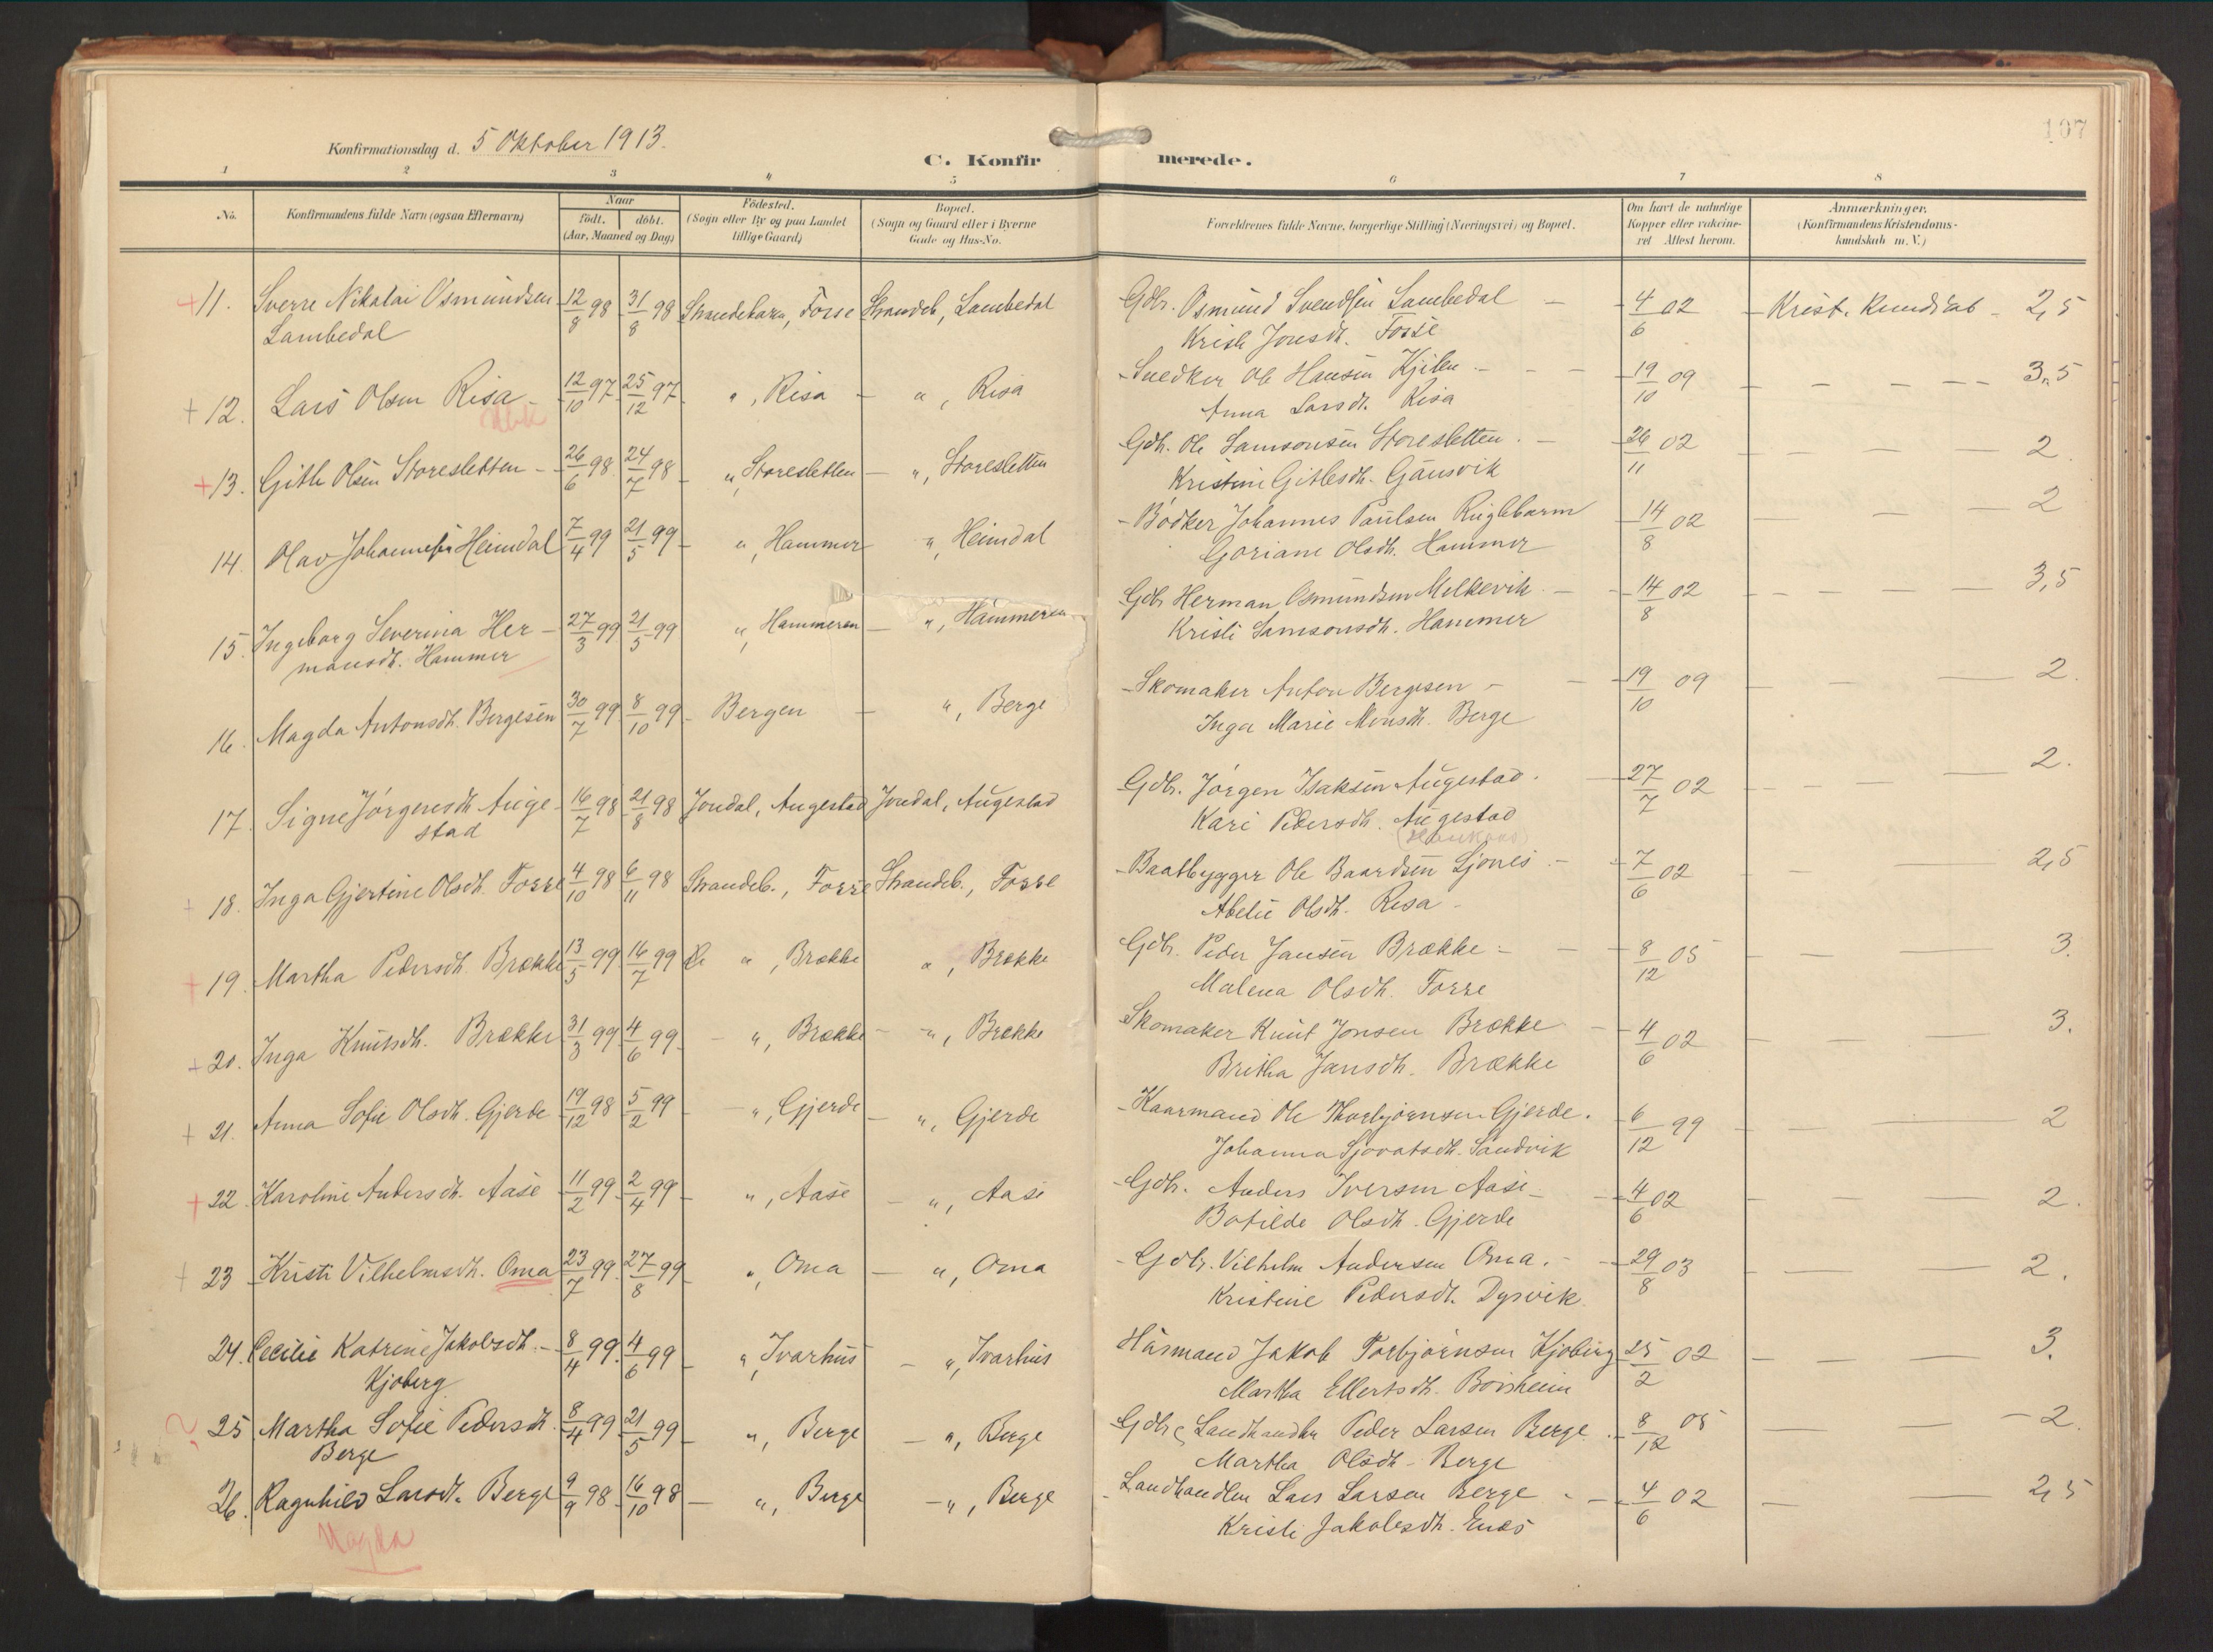 107
Konfirmationsdag d. 5 Oktober 1913.
C. Konfirmerede.
1 2 3 4 5 6 7 8
No.
Konfirmandens fulde Navn (ogsaa Efternavn)
Naar
født. døbt.
(Aar, Maaned og Dag)
Fødested.
(Sogn eller By og paa Landet
tillige Gaard)
Bopæl.
(Sogn og Gaard eller i Byerne
Gade og Hus-No.
Forældrenes fulde Navne, borgerlige Stilling (Næringsvei) og Bopæl.
Om havt de naturlige
Kopper eller vakcine-
ret Attest herom.
Anmærkninger.
(Konfirmandens Kristendoms-
kundskab m. V.)
+ 11. Sverre Nikolai Osmundsen 12/8 98 31/8 98 Strandebarm, Fosse Strandeb, Lambedal Gdbr. Osmund Svendsen Lambedal 4/6 02 Krist. Kundskab 2,5
Lambedal Kristi Jonsdt. Fosse
+ 12. Lars Olsen Risa 12/10 97 25/12 97 ", Risa ", Risa Snedker Ole Hansen Kjilen 19/10 09 3,5
Anna Larsdt. Risa
+ 13. Gitle Olsen Storesletten 26/6 98 24/7 98 ", Storesletten ", Storesletten Gdbr. Ole Samsonsen Storesletten 26/11 02 2
Kristine Gitlesdt. Gausvik
14. Olav Johannesen Heimdal 7/4 99 21/5 99 ", Hammer ", Heimdal Bødker Johannes Paulsen 14/8 02 2
Goriane Olsdt. Hammer
15. Ingeborg Severina Her- 27/3 99 21/5 99 ", Hammeren ", Hammeren Gdbr Herman Osmundsen Melkevik 14/8 02 3,5
mansdt. Hammer Kristi Samsonsdt. Hammer
16. Magda Antonsdt. Bergesen 30/7 99 8/10 99 Bergen ", Berge Skomaker Anton Bergesen 19/10 09 2.
Inga Marie Monsdt. Berge
17. Signe Jørgensdt Auge- 16/7 98 21/8 98 Jondal, Augestad Jondal, Augestad Gdbr. Jørgen Isaksen Augestad 27/7 02 2.
stad Kari Pedersdt. Augestad
+ 18. Inga Gjertine Olsdt. Fosse 4/10 98 6/11 98 Strandeb., Fosse Strandeb., Fosse Baatbygger Ole Baardsen Ljones 7/6 02 2,5
Abelie Olsdt. Risa
+ 19. Martha Pedersdt. Brække 13/5 99 16/7 99 ", Brække ", Brække Gdbr. Peder Jansen Brække 8/12 05 3.
Malena Olsdt. Fosse
+ 20. Inga Knutsdt. Brække 31/3 99 4/6 99 ", Brække ", Brække Skomaker Knut Jonsen Brække 4/6 02 3.
Britha Jansdt. Brække
+ 21. Anna Sofie Olsdt. Gjerde 19/12 98 5/2 99 ", Gjerde ", Gjerde Kaarmand Ole Thorbjørnsen Gjerde 6/12 99 2
Johanna Sjovatsdt. Sandvik
+ 22. Karoline Andersdt. Aase 11/2 99 2/4 99 ", Aase ", Aase Gdbr. Anders Iversen Aase 4/6 02 2.
Botilde Olsdt. Gjerde
+ 23 Kristi Vilhelmsdt. Oma 23/7 99 27/8 99 ", Oma ", Oma Gdbr. Vilhelm Andersen Oma. 29/8 03 2.
Kristine Pedersdt. Dysvik
24. Cecilie Katrine Jakobsdt. 8/4 99 4/6 99 ", Ivarhus ", Ivarhus Husmand Jakob Torbjørnsen Kjoberg 25/2 02 3.
Kjoberg Martha Ellertsdt. Børsheim
25 Martha Sofie Pedersdt. 8/4 99 21/5 99 ", Berge ", Berge Gdbr & Landhandler Peder Larsen Berge 8/12 05 2.
Berge Martha Olsdt. Berge
26. Ragnhild Larsdt. Berge 9/9 98 16/10 98 ", Berge ", Berge Landhandler Lars Larsen Berge 4/6 02 2,5
Magda Kristi Jakobsdt. Enes